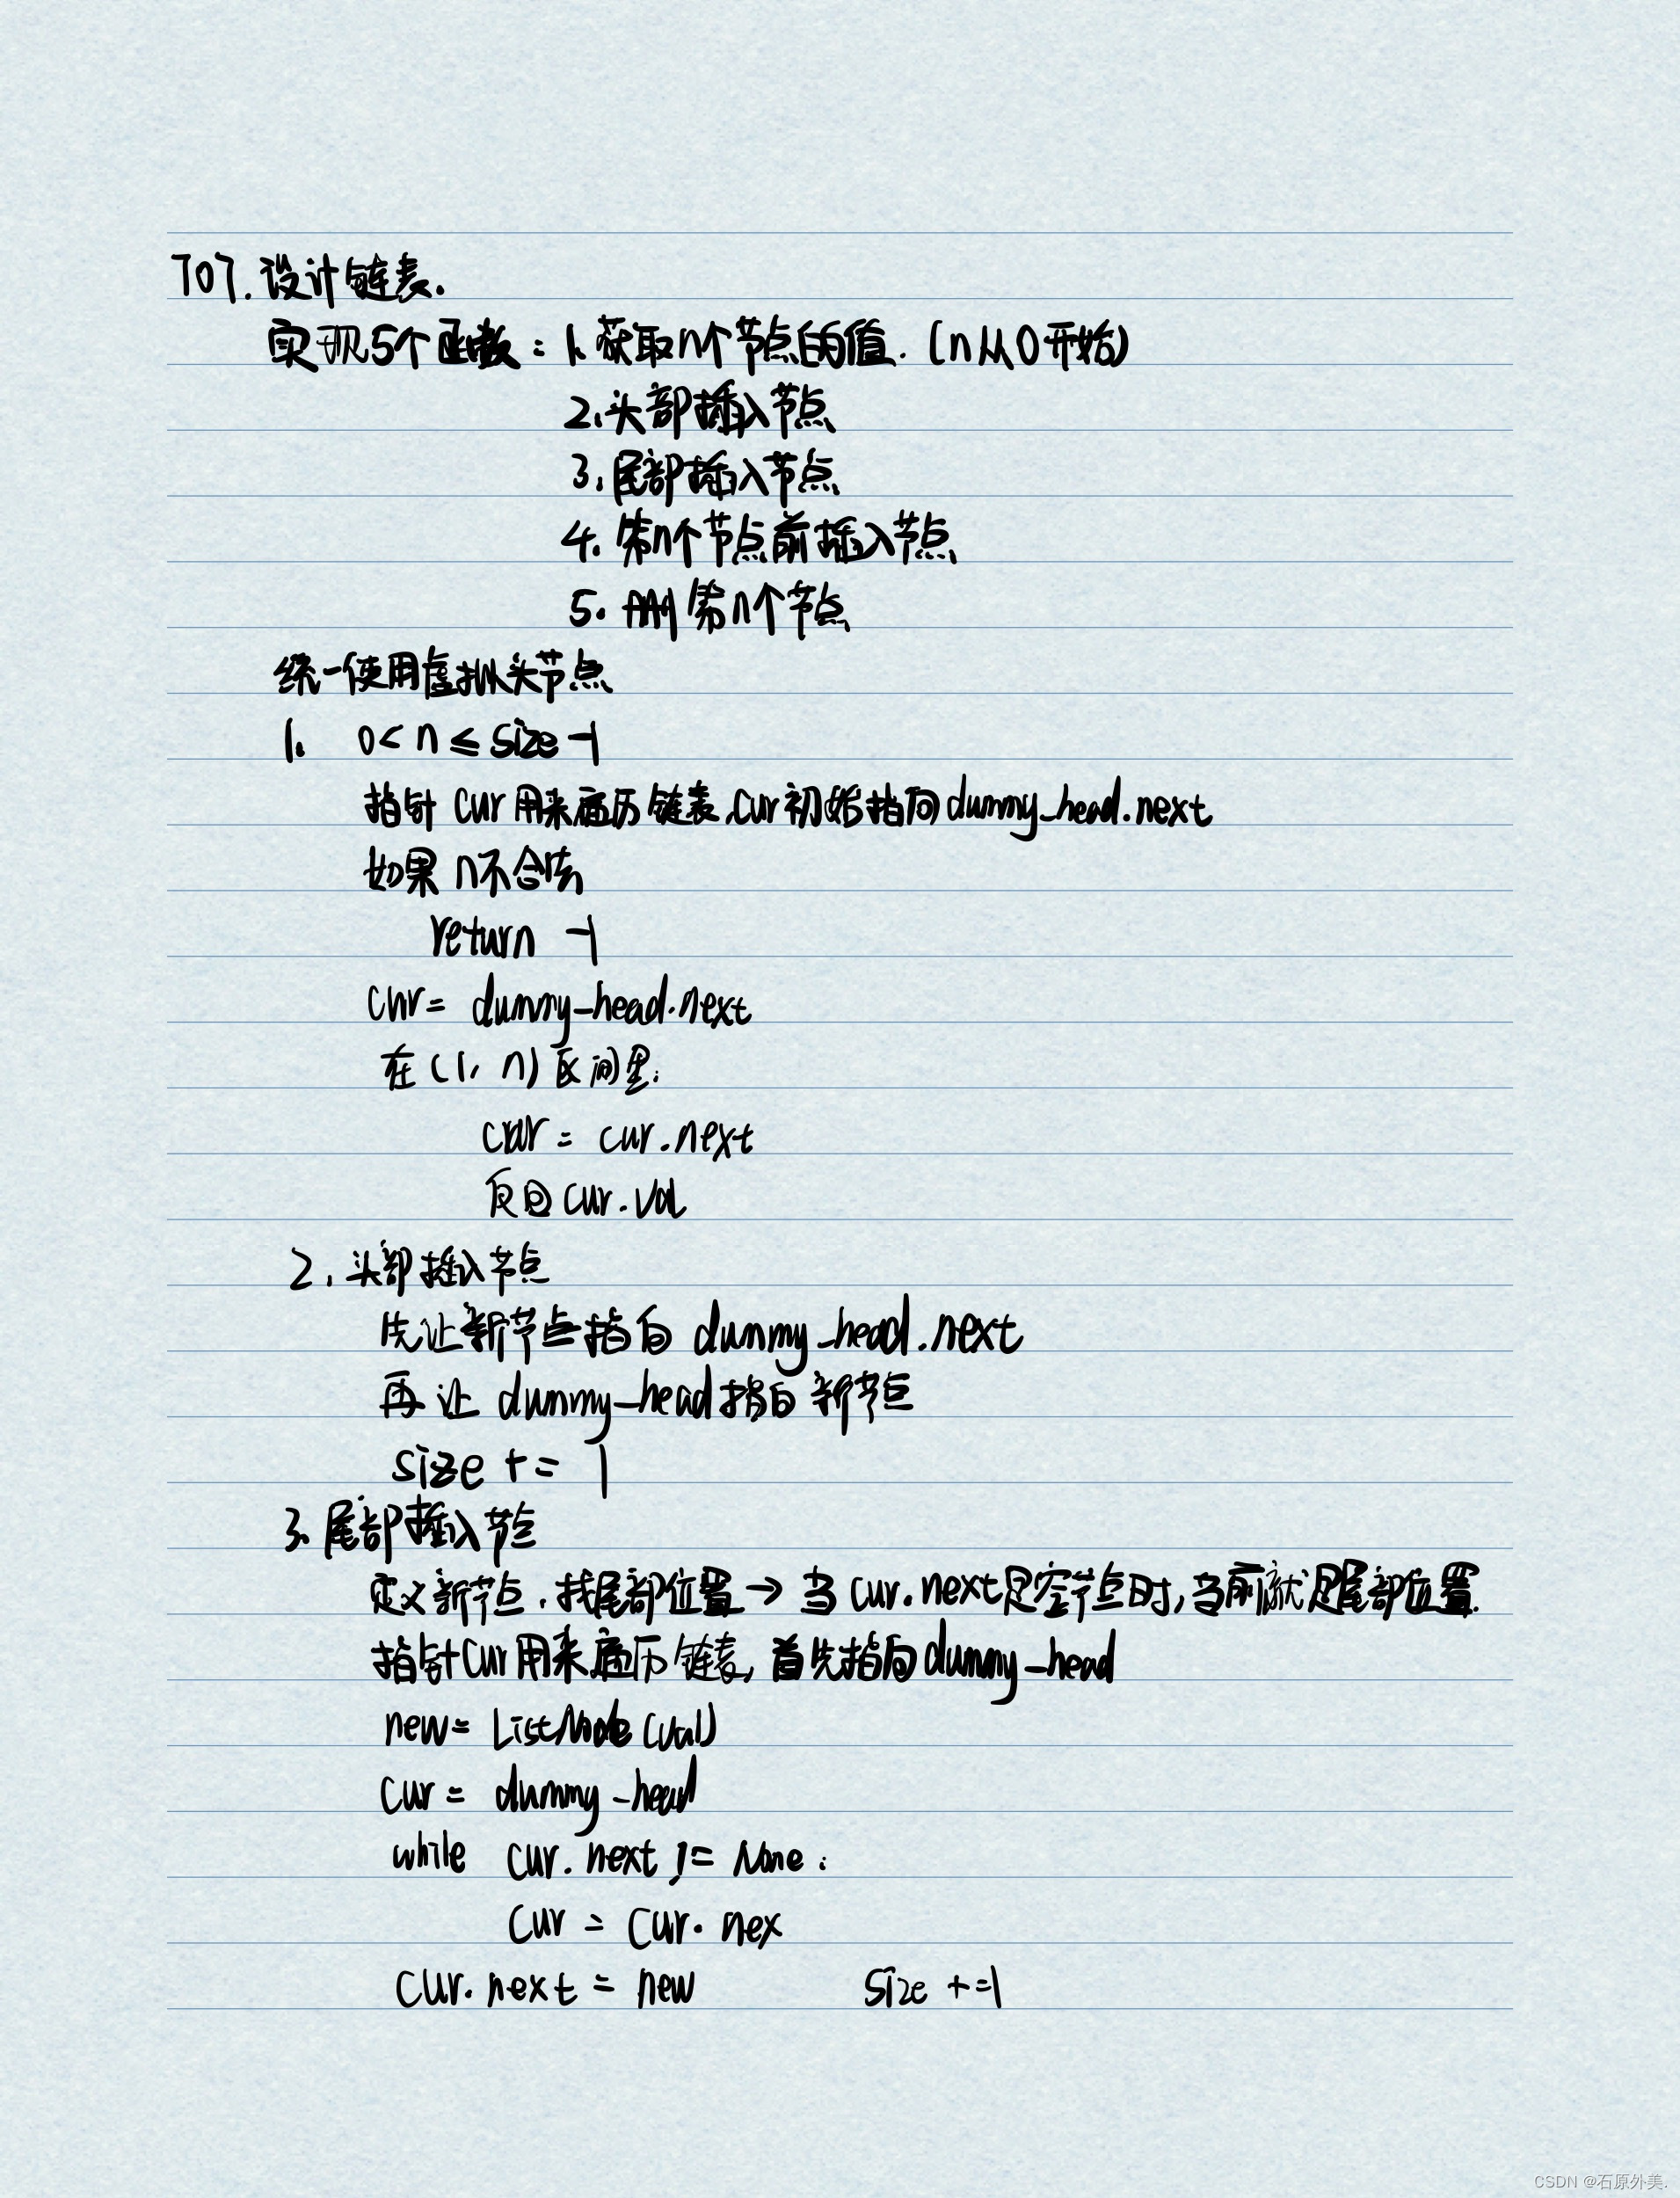 707.设计链表.
实现5个函数：1.获取n个节点的值.(n从0开始)
2.头部插入节点
3.尾部插入节点
4.第n个节点前插入节点
5.删第n个节点
统一使用虚拟头节点
1. 0< n ≤ size -1
指针 cur 用来遍历链表,cur初始指向dummy_head.next
如果 n不合法
return -1
cur= dummy_head.next
在(1, n)区间里:
cur = cur.next
返回 cur.val
2.头部插入节点
先让新节点指向 dummy_head.next
再让 dummy_head指向 新节点
size += 1
3.尾部插入节点
定义新节点.找尾部位置→当 cur.next是空节点时,当前就是尾部位置.
指针Cur用来遍历链表,首先指向dummy_head
new= ListNode(val)
cur = dummy_head
while cur.next != None:
Cur = Cur. nex
cur.next = new size +=1
CSDN @石原外美.